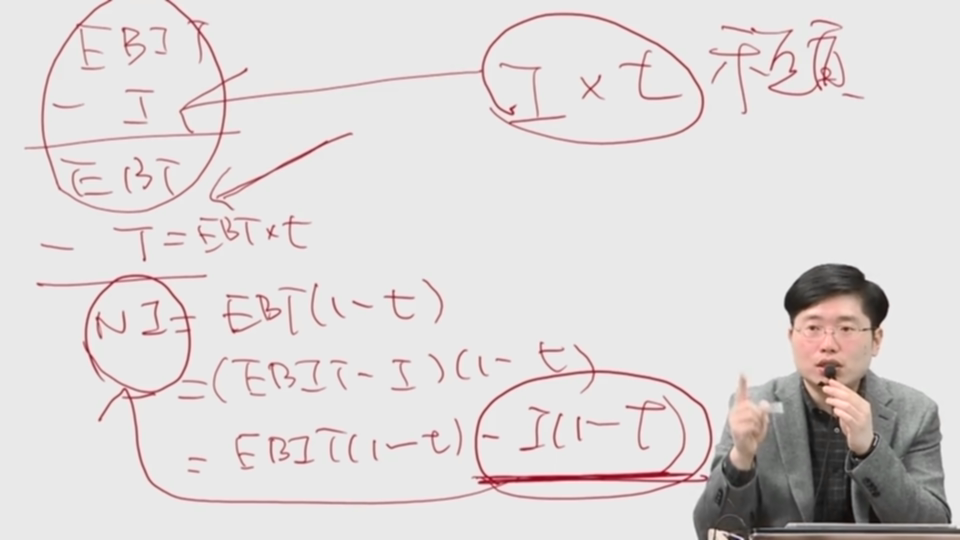 EBIT
- I
I × t
EBT
- T = EBT × t
NI = EBT(1-t)
= (EBIT - I)(1-t)
= EBIT(1-t) - I(1-T)